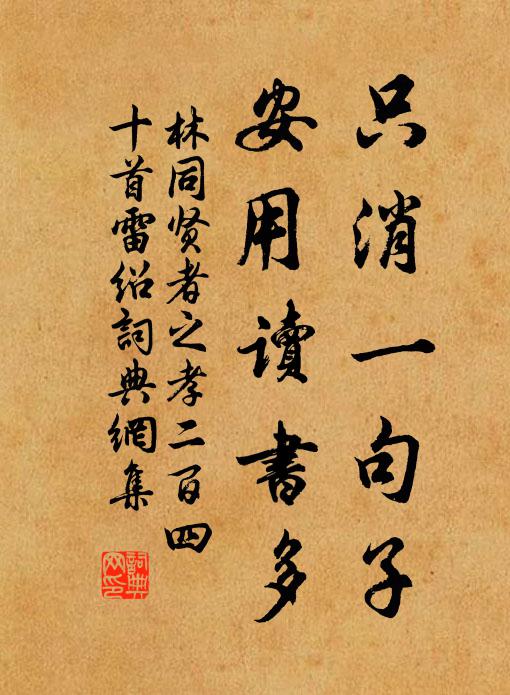 只消一句子
安用读書多
林同贤者之孝二百四
十首雷绍詞典網集
詞典
网印